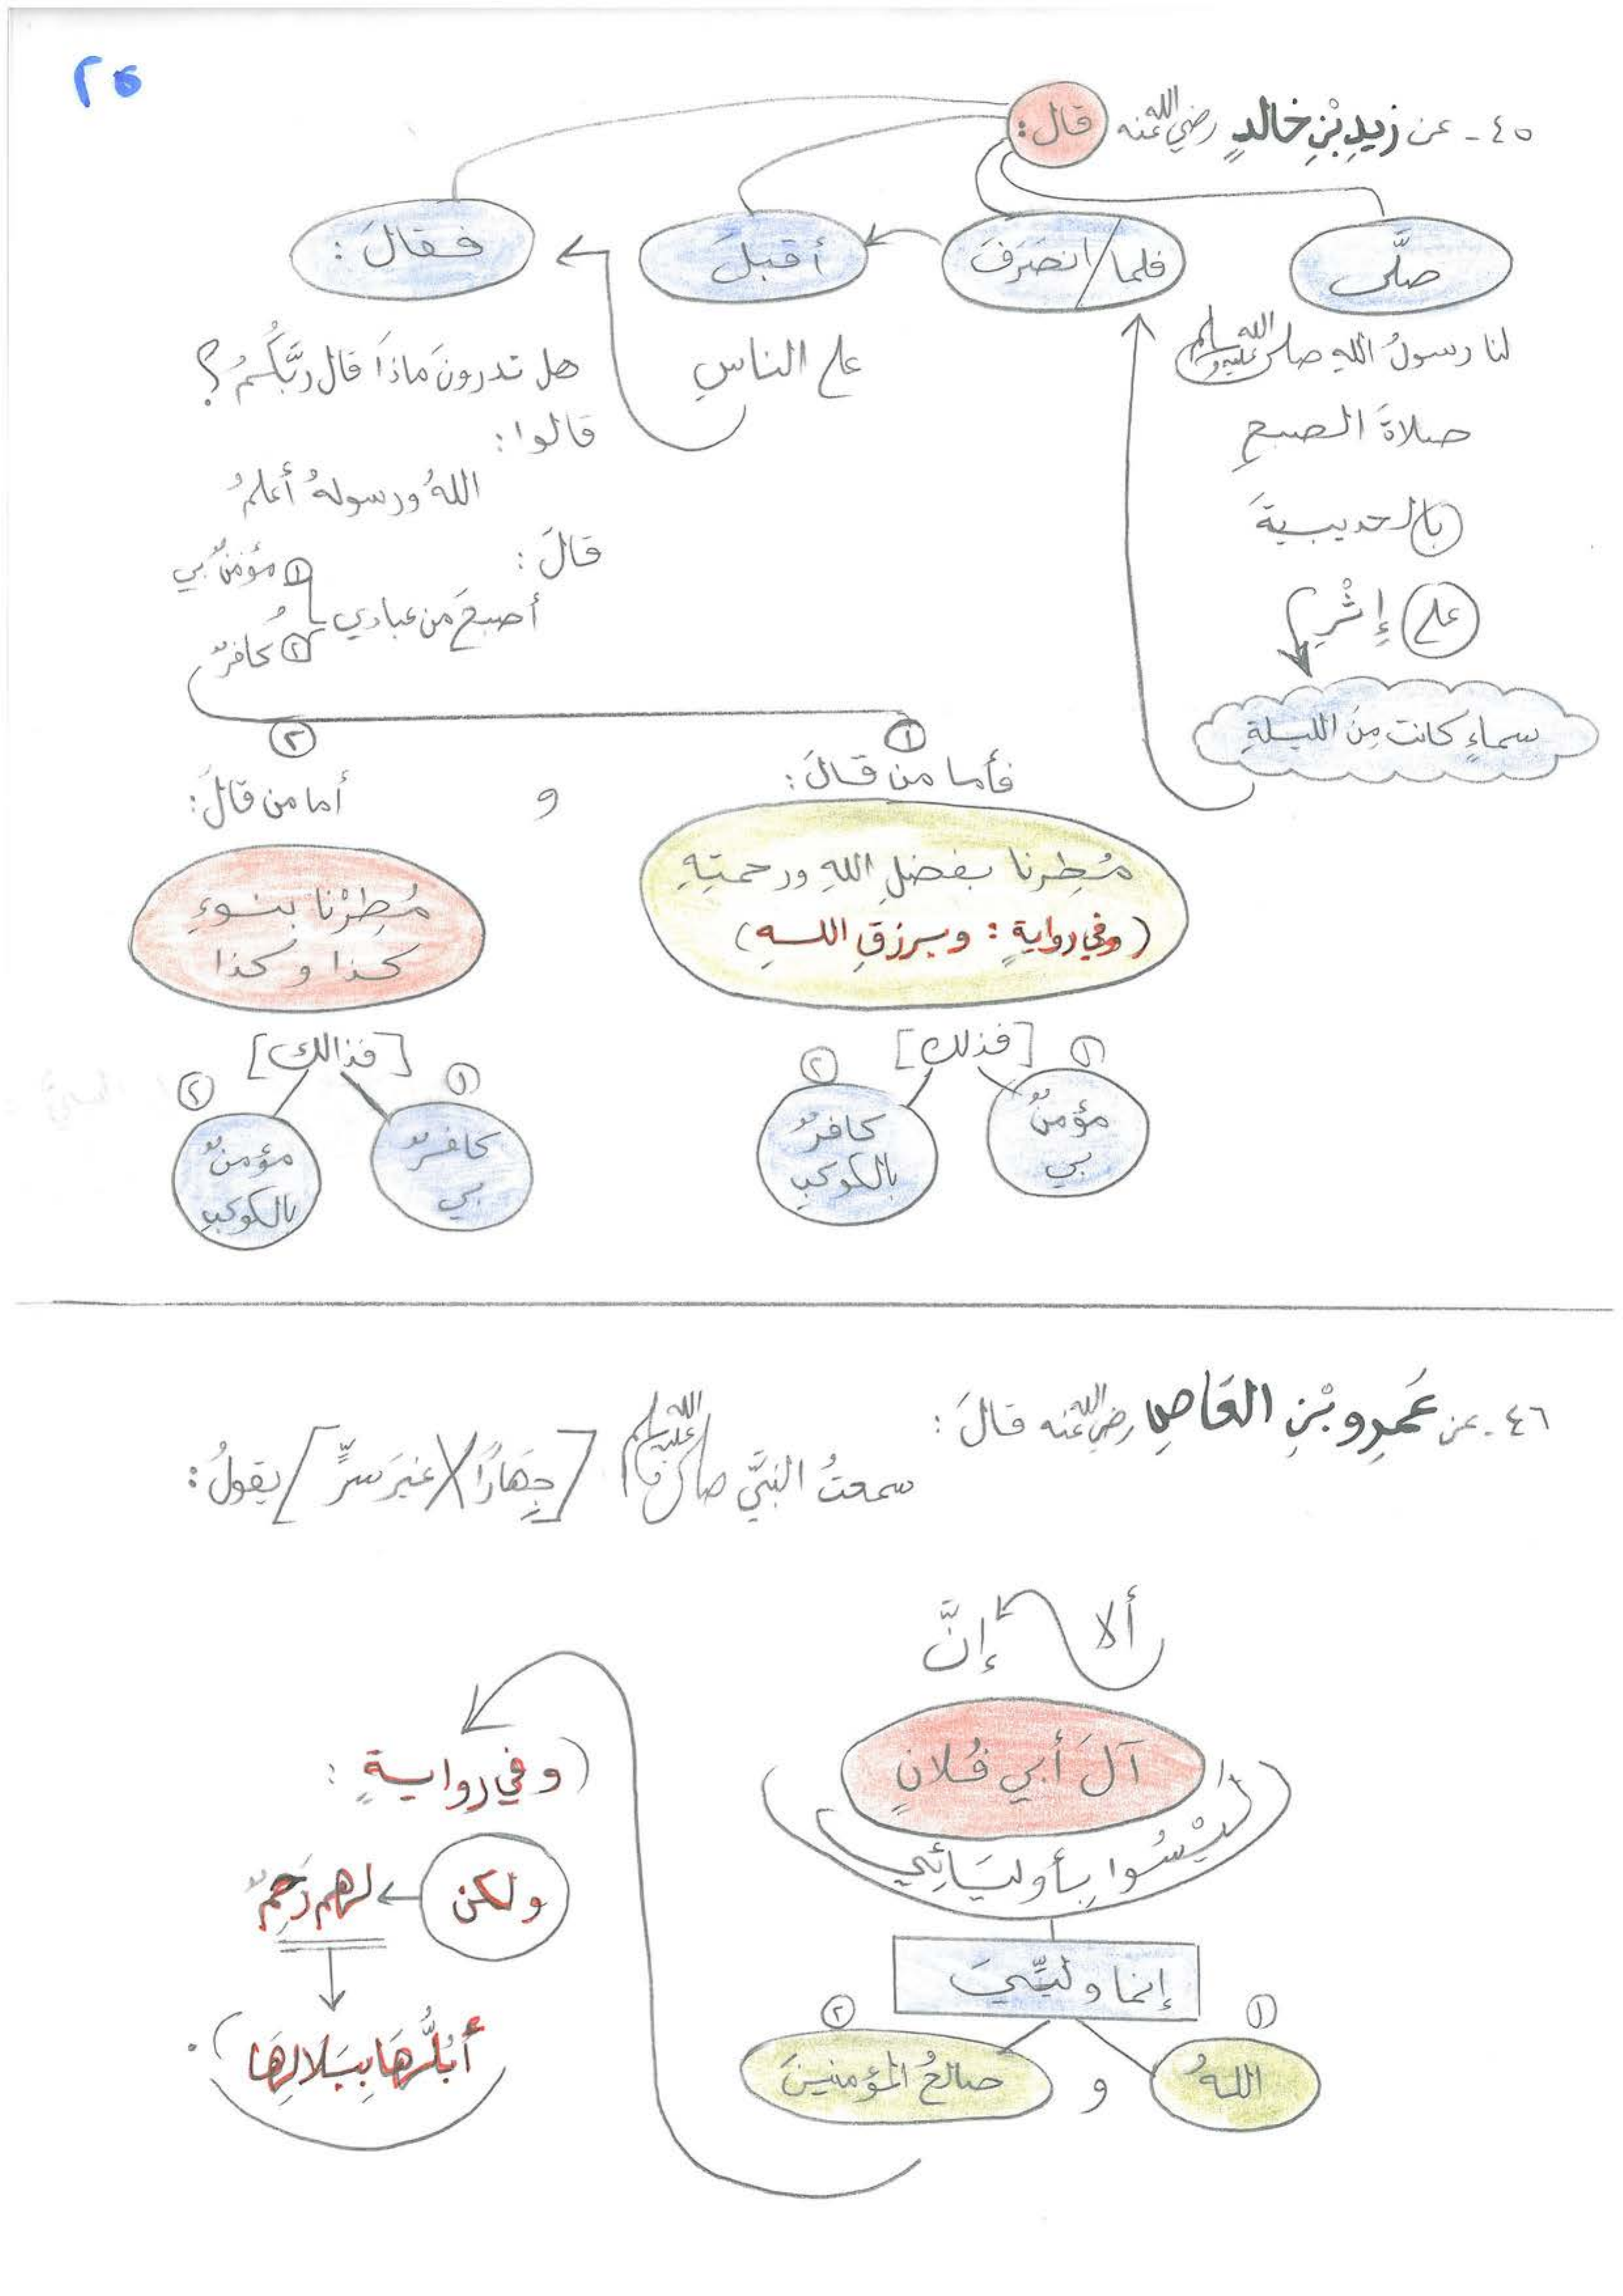 ٢٥
٤٥ - عن زيدِ بْنِ خالدٍ رضي الله عنه قال:
صلَّى
لنا رسولُ اللهِ صلى الله عليه وسلم
صلاةَ الصبحِ
بالحديبيةَ
على إِثْرِ
سماءٍ كانت مِنَ الليلةِ
فلما / انصَرَفَ
أقبلَ
على الناسِ
فقالَ:
هل تدرونَ ماذَا قال ربُّكُمُ؟
قالوا:
اللهُ ورسولهُ أعلمُ
قالَ:
أصبحَ من عبادي
① مؤمنٌ بي
و
② كافرٌ
①
فأما من قالَ:
مُطِرنا بفضلِ اللهِ ورحمتِهِ
(وفي روايةٍ: وبرزقِ اللهِ)
[فذلك]
① مؤمنٌ بي
② كافرٌ بالكوكبِ
و
②
أما من قالَ:
مُطِرْنا بنوءِ
كذا وكذا
[فذالك]
① كافرٌ بي
② مؤمنٌ بالكوكبِ
٤٦ - عن عَمرِو بْنِ العَاصِ رضي الله عنه قالَ:
سمعتُ النبيَّ صلى الله عليه وسلم [جِهَارًا / غيرَ سرٍّ] يقولُ:
ألا إنَّ
آلَ أبي فُلانٍ
لَيْسُوا بِأوليَائِي
إنما وليِّيَ
① اللهُ
و
② صالحُ المؤمنينَ
(وفي روايةٍ:
ولكن لهم رَحِمٌ
أَبُلُّهَا بِبَلالِهَا).